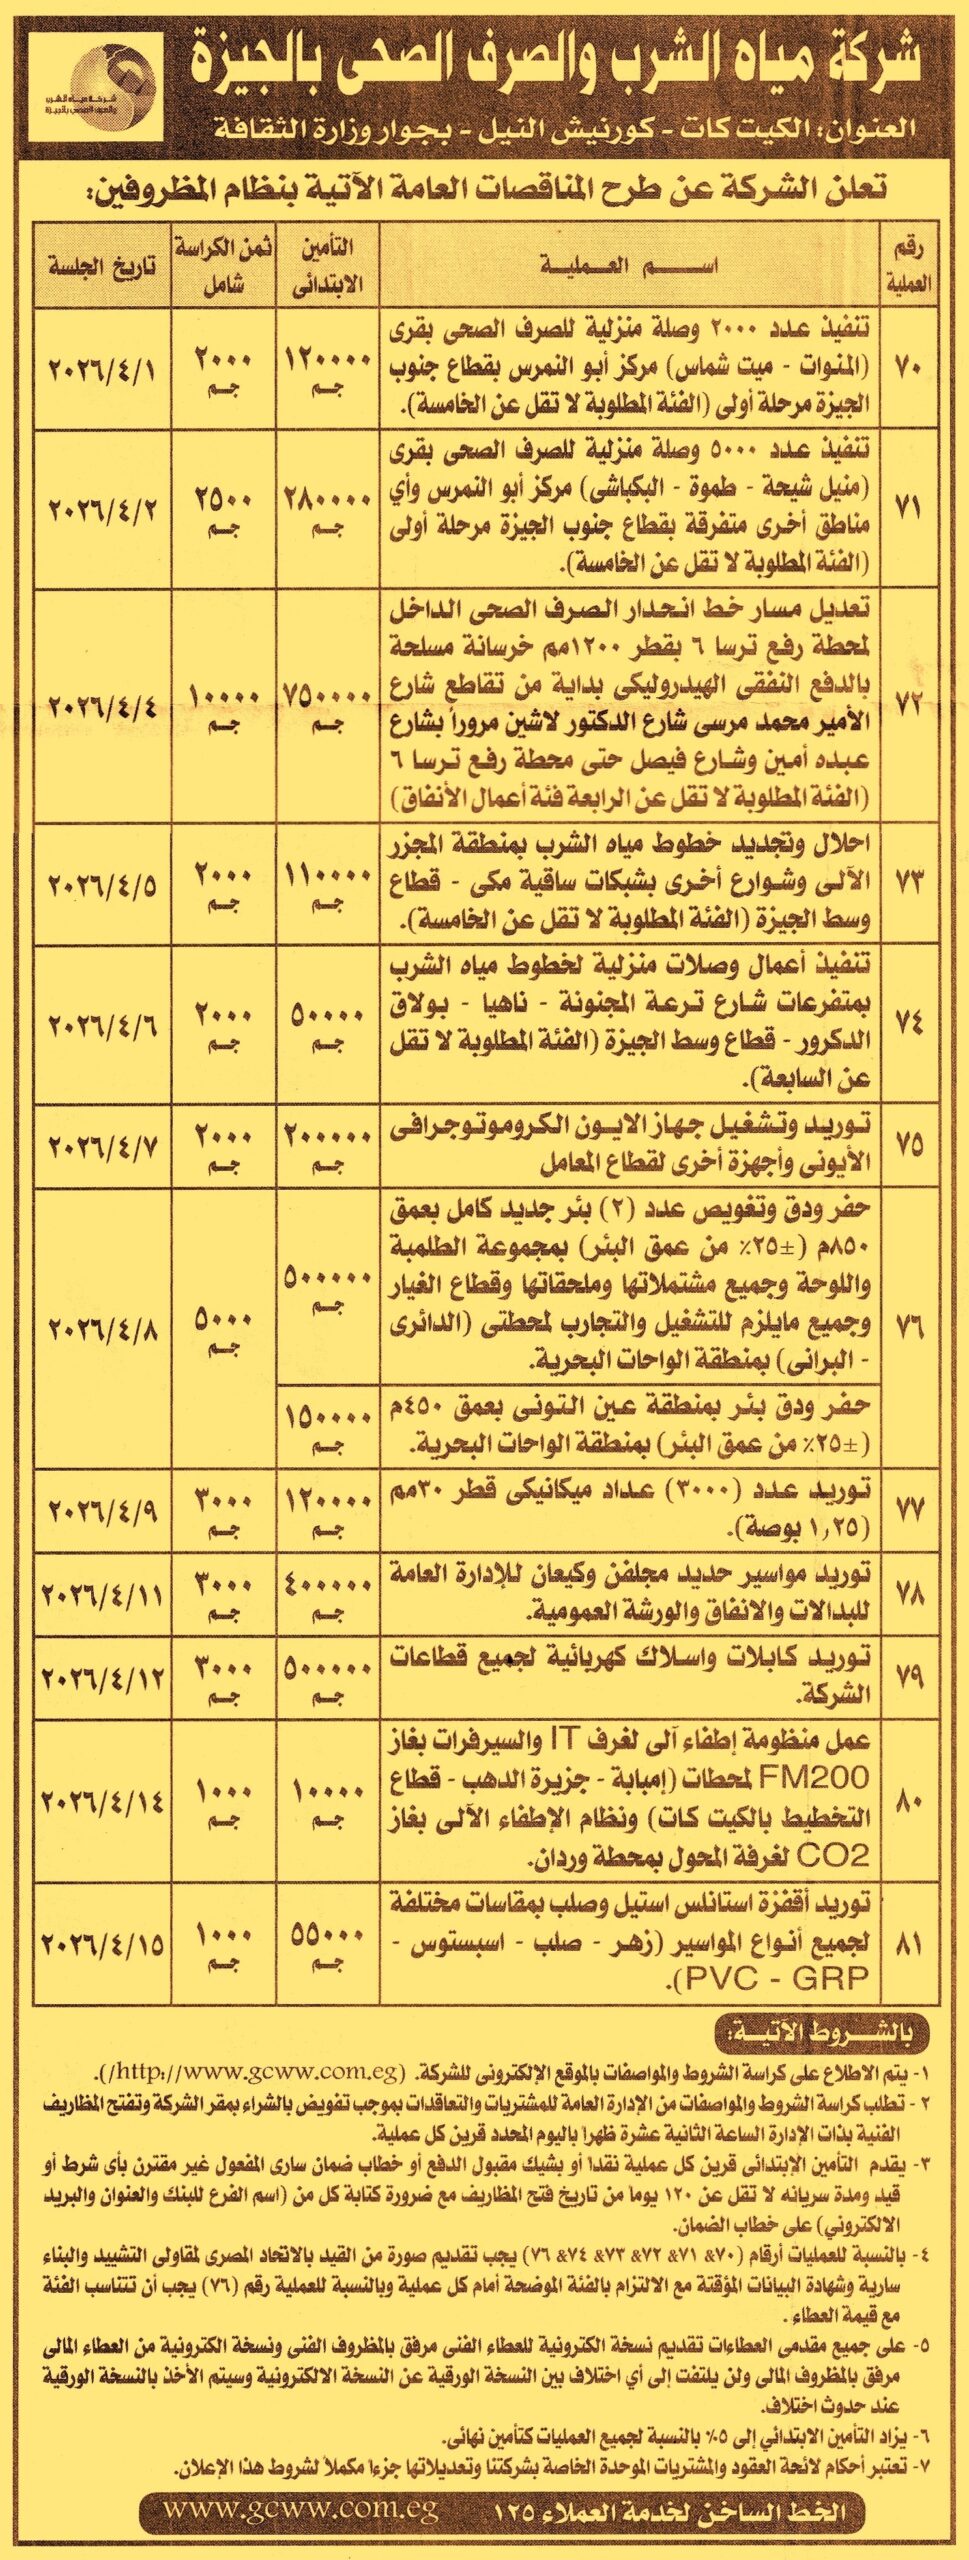 شركة مياه الشرب والصرف الصحى بالجيزة
شركة مياه الشرب
والصرف الصحى بالجيزة
العنوان: الكيت كات - كورنيش النيل - بجوار وزارة الثقافة
تعلن الشركة عن طرح المناقصات العامة الآتية بنظام المظروفين:
رقم العملية
اسم العملية
التأمين الابتدائى
ثمن الكراسة شامل
تاريخ الجلسة
٧٠
تنفيذ عدد ٢٠٠٠ وصلة منزلية للصرف الصحى بقرى
(المنوات - ميت شماس) مركز أبو النمرس بقطاع جنوب
الجيزة مرحلة أولى (الفئة المطلوبة لا تقل عن الخامسة).
١٢٠٠٠٠ جم
٢٠٠٠ جم
٢٠٢٦/٤/١
٧١
تنفيذ عدد ٥٠٠٠ وصلة منزلية للصرف الصحى بقرى
(منيل شيحة - طموة - البكباشى) مركز أبو النمرس وأي
مناطق أخرى متفرقة بقطاع جنوب الجيزة مرحلة أولى
(الفئة المطلوبة لا تقل عن الخامسة).
٢٨٠٠٠٠ جم
٢٥٠٠ جم
٢٠٢٦/٤/٢
٧٢
تعديل مسار خط انحدار الصرف الصحى الداخل
لمحطة رفع ترسا ٦ بقطر ١٢٠٠مم خرسانة مسلحة
بالدفع النفقى الهيدروليكى بداية من تقاطع شارع
الأمير محمد مرسى شارع الدكتور لاشين مروراً بشارع
عبده أمين وشارع فيصل حتى محطة رفع ترسا ٦
(الفئة المطلوبة لا تقل عن الرابعة فئة أعمال الأنفاق)
٧٥٠٠٠٠ جم
١٠٠٠٠ جم
٢٠٢٦/٤/٤
٧٣
احلال وتجديد خطوط مياه الشرب بمنطقة المجزر
الآلى وشوارع أخرى بشبكات ساقية مكى - قطاع
وسط الجيزة (الفئة المطلوبة لا تقل عن الخامسة).
١١٠٠٠٠ جم
٢٠٠٠ جم
٢٠٢٦/٤/٥
٧٤
تنفيذ أعمال وصلات منزلية لخطوط مياه الشرب
بمتفرعات شارع ترعة المجنونة - ناهيا - بولاق
الدكرور - قطاع وسط الجيزة (الفئة المطلوبة لا تقل
عن السابعة).
٥٠٠٠٠ جم
٢٠٠٠ جم
٢٠٢٦/٤/٦
٧٥
توريد وتشغيل جهاز الايون الكروموتوجرافى
الأيونى وأجهزة أخرى لقطاع المعامل
٢٠٠٠٠٠ جم
٢٠٠٠ جم
٢٠٢٦/٤/٧
٧٦
حفر ودق وتغويص عدد (٢) بئر جديد كامل بعمق
٨٥٠م (±٢٥٪ من عمق البئر) بمجموعة الطلمبة
واللوحة وجميع مشتملاتها وملحقاتها وقطاع الغيار
وجميع مايلزم للتشغيل والتجارب لمحطتى (الدائرى
- البرانى) بمنطقة الواحات البحرية.
٥٠٠٠٠٠ جم
٥٠٠٠ جم
٢٠٢٦/٤/٨
حفر ودق بئر بمنطقة عين التونى بعمق ٤٥٠م
(±٢٥٪ من عمق البئر) بمنطقة الواحات البحرية.
١٥٠٠٠٠ جم
٧٧
توريد عدد (٣٠٠٠) عداد ميكانيكى قطر ٣٠مم
(١,٢٥ بوصة).
١٢٠٠٠٠ جم
٣٠٠٠ جم
٢٠٢٦/٤/٩
٧٨
توريد مواسير حديد مجلفن وكيعان للإدارة العامة
للبدالات والانفاق والورشة العمومية.
٤٠٠٠٠٠ جم
٣٠٠٠ جم
٢٠٢٦/٤/١١
٧٩
توريد كابلات واسلاك كهربائية لجميع قطاعات
الشركة.
٥٠٠٠٠٠ جم
٣٠٠٠ جم
٢٠٢٦/٤/١٢
٨٠
عمل منظومة إطفاء آلى لغرف IT والسيرفرات بغاز
FM200 لمحطات (إمبابة - جزيرة الدهب - قطاع
التخطيط بالكيت كات) ونظام الإطفاء الآلى بغاز
CO2 لغرفة المحول بمحطة وردان.
١٠٠٠٠ جم
١٠٠٠ جم
٢٠٢٦/٤/١٤
٨١
توريد أقفزة استانلس استيل وصلب بمقاسات مختلفة
لجميع أنواع المواسير (زهر - صلب - اسبستوس -
PVC - GRP).
٥٥٠٠٠ جم
١٠٠٠ جم
٢٠٢٦/٤/١٥
بالشروط الآتية:
١- يتم الاطلاع على كراسة الشروط والمواصفات بالموقع الإلكترونى للشركة. (http://www.gcww.com.eg/).
٢- تطلب كراسة الشروط والمواصفات من الإدارة العامة للمشتريات والتعاقدات بموجب تفويض بالشراء بمقر الشركة وتفتح المظاريف
الفنية بذات الإدارة الساعة الثانية عشرة ظهرا باليوم المحدد قرين كل عملية.
٣- يقدم التأمين الإبتدائى قرين كل عملية نقدا أو بشيك مقبول الدفع أو خطاب ضمان سارى المفعول غير مقترن بأى شرط أو
قيد ومدة سريانه لا تقل عن ١٢٠ يوما من تاريخ فتح المظاريف مع ضرورة كتابة كل من (اسم الفرع للبنك والعنوان والبريد
الالكتروني) على خطاب الضمان.
٤- بالنسبة للعمليات أرقام (٧٠& ٧١& ٧٢& ٧٣& ٧٤& ٧٦) يجب تقديم صورة من القيد بالاتحاد المصرى لمقاولى التشييد والبناء
سارية وشهادة البيانات المؤقتة مع الالتزام بالفئة الموضحة أمام كل عملية وبالنسبة للعملية رقم (٧٦) يجب أن تتناسب الفئة
مع قيمة العطاء.
٥- على جميع مقدمى العطاءات تقديم نسخة الكترونية للعطاء الفنى مرفق بالمظروف الفنى ونسخة الكترونية من العطاء المالى
مرفق بالمظروف المالى ولن يلتفت إلى أي اختلاف بين النسخة الورقية عن النسخة الالكترونية وسيتم الأخذ بالنسخة الورقية
عند حدوث اختلاف.
٦- يزاد التأمين الابتدائي إلى ٥٪ بالنسبة لجميع العمليات كتأمين نهائى.
٧- تعتبر أحكام لائحة العقود والمشتريات الموحدة الخاصة بشركتنا وتعديلاتها جزءا مكملاً لشروط هذا الإعلان.
الخط الساخن لخدمة العملاء ١٢٥ www.gcww.com.eg